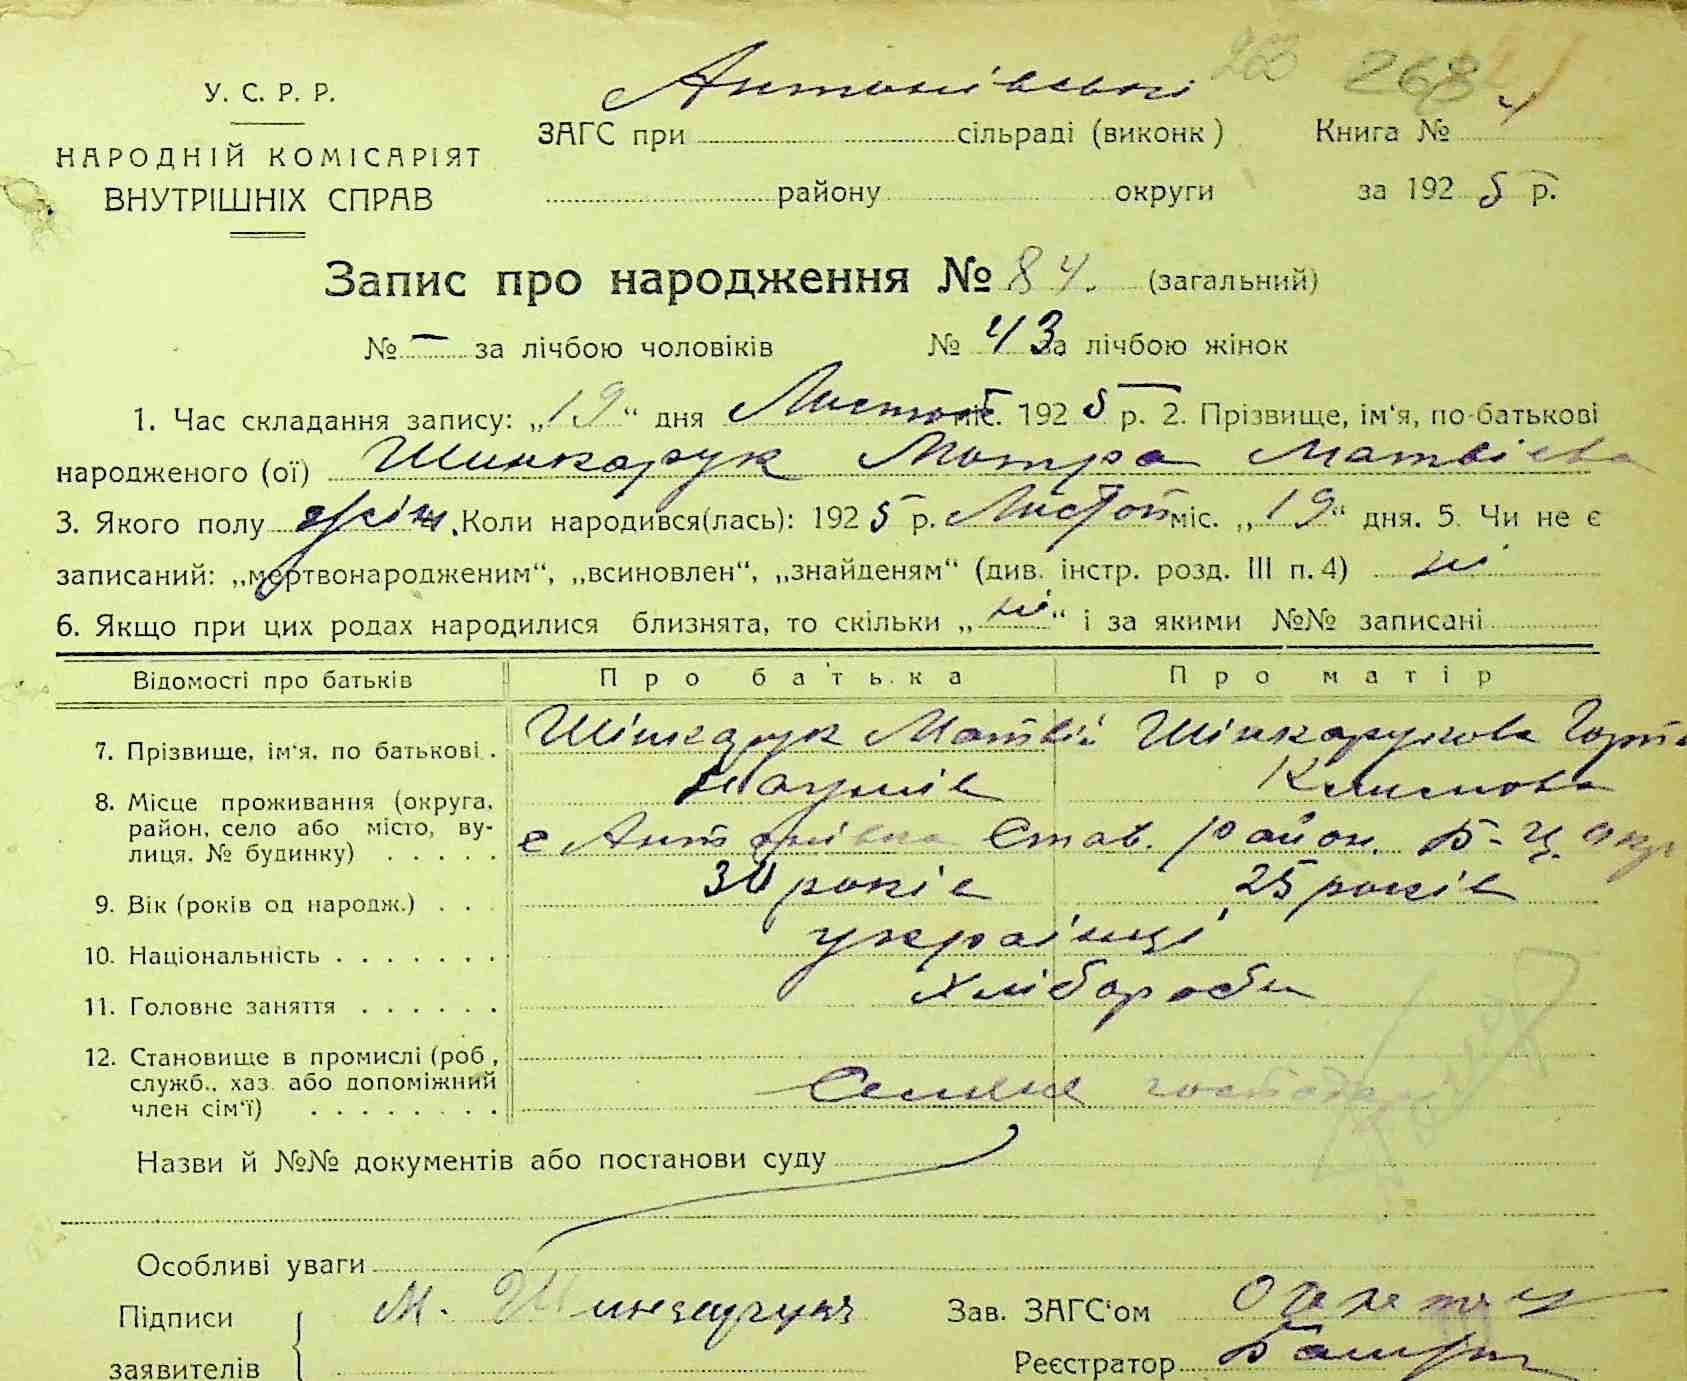 268
У. С. Р. Р.
Антонівській
ЗАГС при сільраді (виконк) Книга № 4
НАРОДНІЙ КОМІСАРІЯТ
ВНУТРІШНІХ СПРАВ
району округи за 1925 р.
Запис про народження № 84. (загальний)
№ — за лічбою чоловіків № 43 за лічбою жінок
1. Час складання запису: „19“ дня Листоп міс. 1925 р. 2. Прізвище, ім'я, по-батькові
народженого (ої) Шинкарук Мотря Матвієва
3. Якого полу жін. Коли народився(лась): 1925 р. Листоп міс. „19“ дня. 5. Чи не є
записаний: „мертвонародженим“, „всиновлен“, „знайденям“ (див. інстр. розд. III п. 4) ні
6. Якщо при цих родах народилися близнята, то скільки „ні“ і за якими №№ записані
Відомості про батьків Про батька Про матір
7. Прізвище, ім'я, по батькові. Шінкарук Матвій Шінкарукова
Наумів Климова
8. Місце проживання (округа, район, село або місто, вулиця, № будинку) с Антонівка Став. район. Б-Ц окр
9. Вік (років од народж.) 30 років 25 років
10. Національність українці
11. Головне заняття Хлібороби
12. Становище в промислі (роб, служб., хаз. або допоміжний член сім'ї) Селяне господарі
Назви й №№ документів або постанови суду
Особливі уваги
Підписи заявителів М. Шинкарук
Зав. ЗАГС'ом
Реєстратор